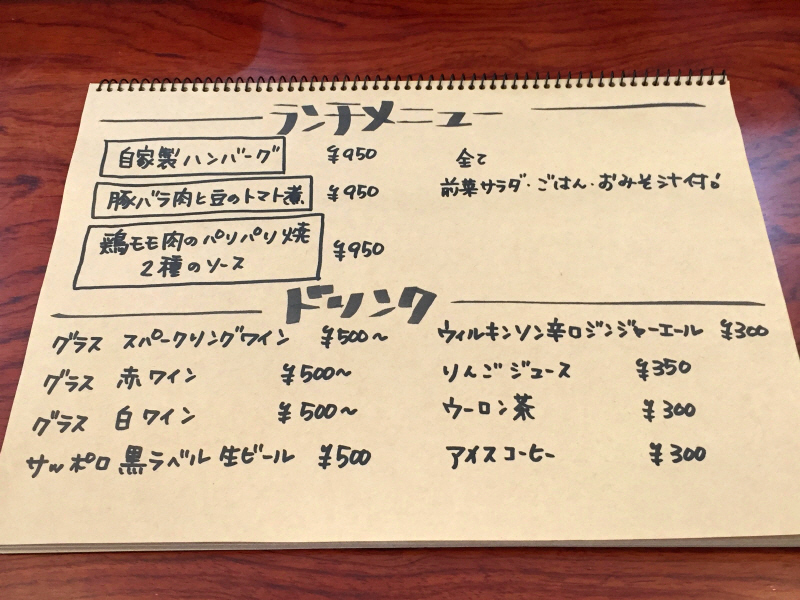 ランチメニュー
自家製ハンバーグ ¥950
豚バラ肉と豆のトマト煮 ¥950
鶏モモ肉のパリパリ焼
2種のソース ¥950
全て
前菜サラダ・ごはん・おみそ汁付!
ドリンク
グラス スパークリングワイン ¥500〜
グラス 赤ワイン ¥500〜
グラス 白ワイン ¥500〜
サッポロ 黒ラベル 生ビール ¥500
ウィルキンソン辛口ジンジャーエール ¥300
りんごジュース ¥350
ウーロン茶 ¥300
アイスコーヒー ¥300